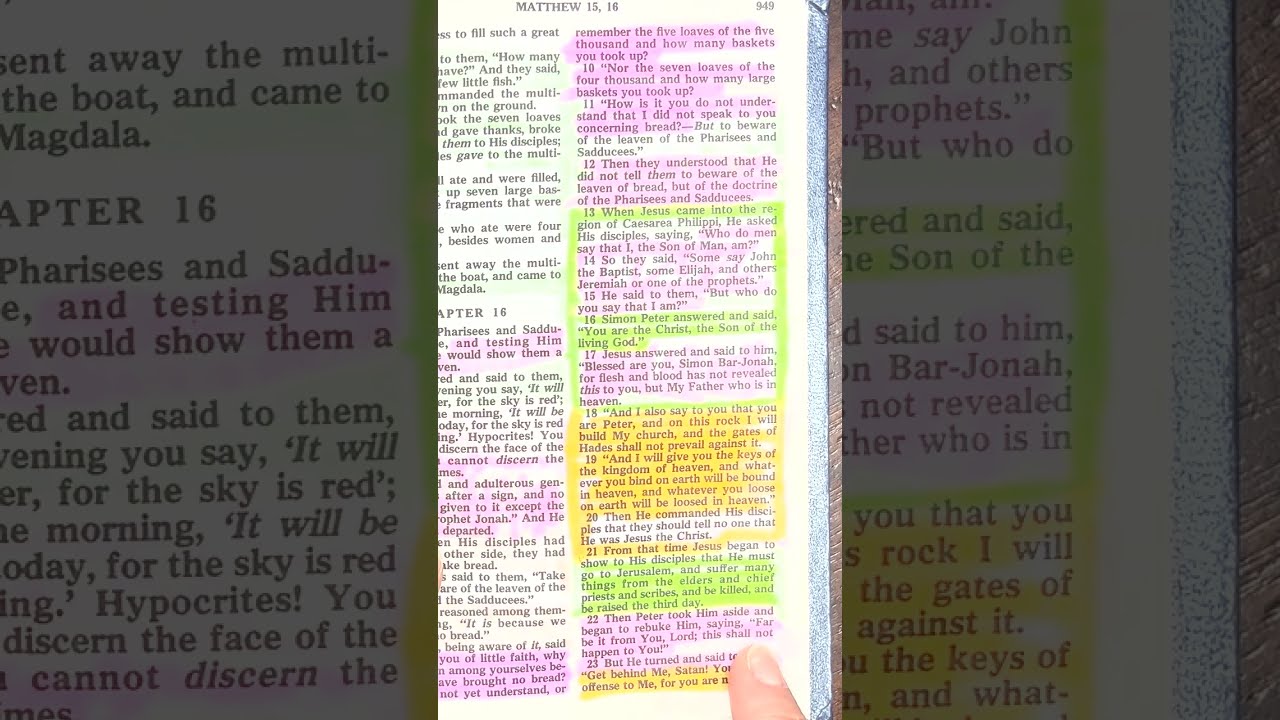 MATTHEW 15, 16
949
ss to fill such a great
to them, "How many
have?" And they said,
few little fish."
mmanded the multi-
n on the ground.
ook the seven loaves
d gave thanks, broke
them to His disciples;
les gave to the multi-
ll ate and were filled,
up seven large bas-
e fragments that were
e who ate were four
, besides women and
sent away the multi-
the boat, and came to
Magdala.
APTER 16
Pharisees and Saddu-
e, and testing Him
e would show them a
ven.
red and said to them,
vening you say, 'It will
er, for the sky is red';
he morning, 'It will be
oday, for the sky is red
ing.' Hypocrites! You
discern the face of the
cannot discern the
mes.
d and adulterous gen-
after a sign, and no
given to it except the
rophet Jonah." And He
departed.
en His disciples had
other side, they had
ake bread.
s said to them, "Take
are of the leaven of the
d the Sadducees."
reasoned among them-
g, "It is because we
o bread."
, being aware of it, said
you of little faith, why
n among yourselves be-
ave brought no bread?
not yet understand, or
remember the five loaves of the five
thousand and how many baskets
you took up?
10 "Nor the seven loaves of the
four thousand and how many large
baskets you took up?
11 "How is it you do not under-
stand that I did not speak to you
concerning bread?—But to beware
of the leaven of the Pharisees and
Sadducees."
12 Then they understood that He
did not tell them to beware of the
leaven of bread, but of the doctrine
of the Pharisees and Sadducees.
13 When Jesus came into the re-
gion of Caesarea Philippi, He asked
His disciples, saying, "Who do men
say that I, the Son of Man, am?"
14 So they said, "Some say John
the Baptist, some Elijah, and others
Jeremiah or one of the prophets."
15 He said to them, "But who do
you say that I am?"
16 Simon Peter answered and said,
"You are the Christ, the Son of the
living God."
17 Jesus answered and said to him,
"Blessed are you, Simon Bar-Jonah,
for flesh and blood has not revealed
this to you, but My Father who is in
heaven.
18 "And I also say to you that you
are Peter, and on this rock I will
build My church, and the gates of
Hades shall not prevail against it.
19 "And I will give you the keys of
the kingdom of heaven, and what-
ever you bind on earth will be bound
in heaven, and whatever you loose
on earth will be loosed in heaven."
20 Then He commanded His disci-
ples that they should tell no one that
He was Jesus the Christ.
21 From that time Jesus began to
show to His disciples that He must
go to Jerusalem, and suffer many
things from the elders and chief
priests and scribes, and be killed, and
be raised the third day.
22 Then Peter took Him aside and
began to rebuke Him, saying, "Far
be it from You, Lord; this shall not
happen to You!"
23 But He turned and said
"Get behind Me, Satan!
offense to Me, for you are
sent away the multi-
the boat, and came to
Magdala.
APTER 16
Pharisees and Saddu-
e, and testing Him
e would show them a
ven.
red and said to them,
vening you say, 'It will
er, for the sky is red';
he morning, 'It will be
oday, for the sky is red
ing.' Hypocrites! You
discern the face of the
cannot discern the
mes.
me say John
h, and others
prophets."
"But who do
ered and said,
he Son of the
d said to him,
on Bar-Jonah,
not revealed
ther who is in
you that you
s rock I will
the gates of
against it.
u the keys of
n, and what-